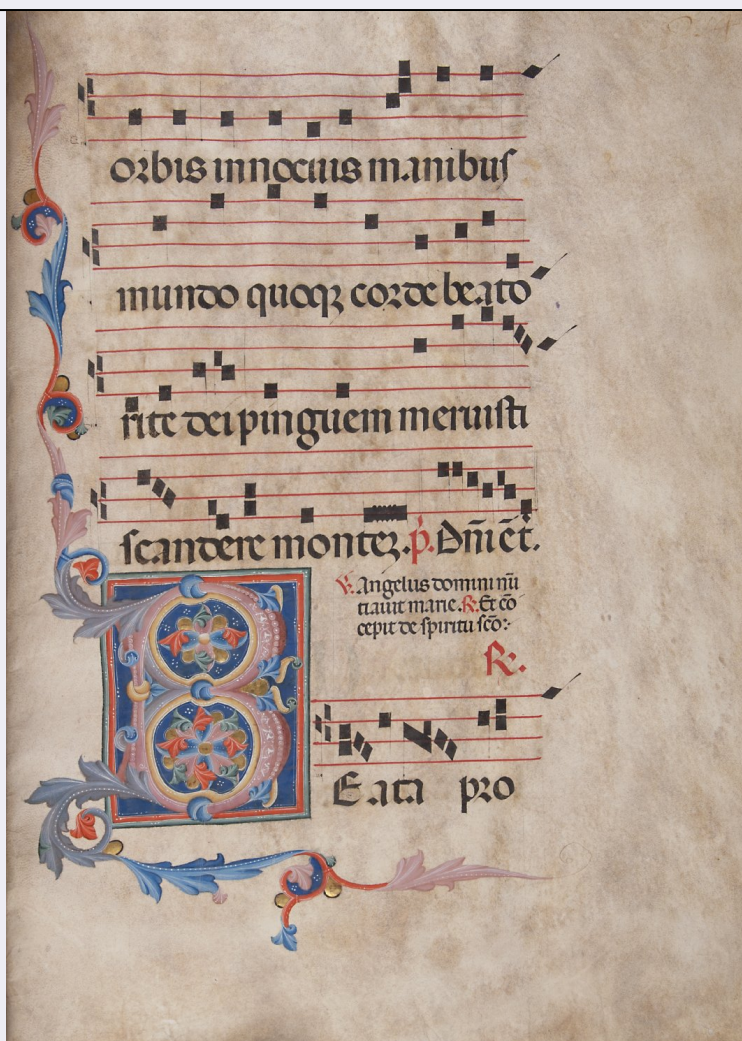 orbis innocuis manibus
mundo quoqꝫ corde beato
rite dei pinguem meruisti
scandere monteꝫ. p̄. Dñi ēt.
℣. Angelus domini nū
tiauit marie. ℟. Et cō
cepit de spiritu scō:
℟.
B Eata pro